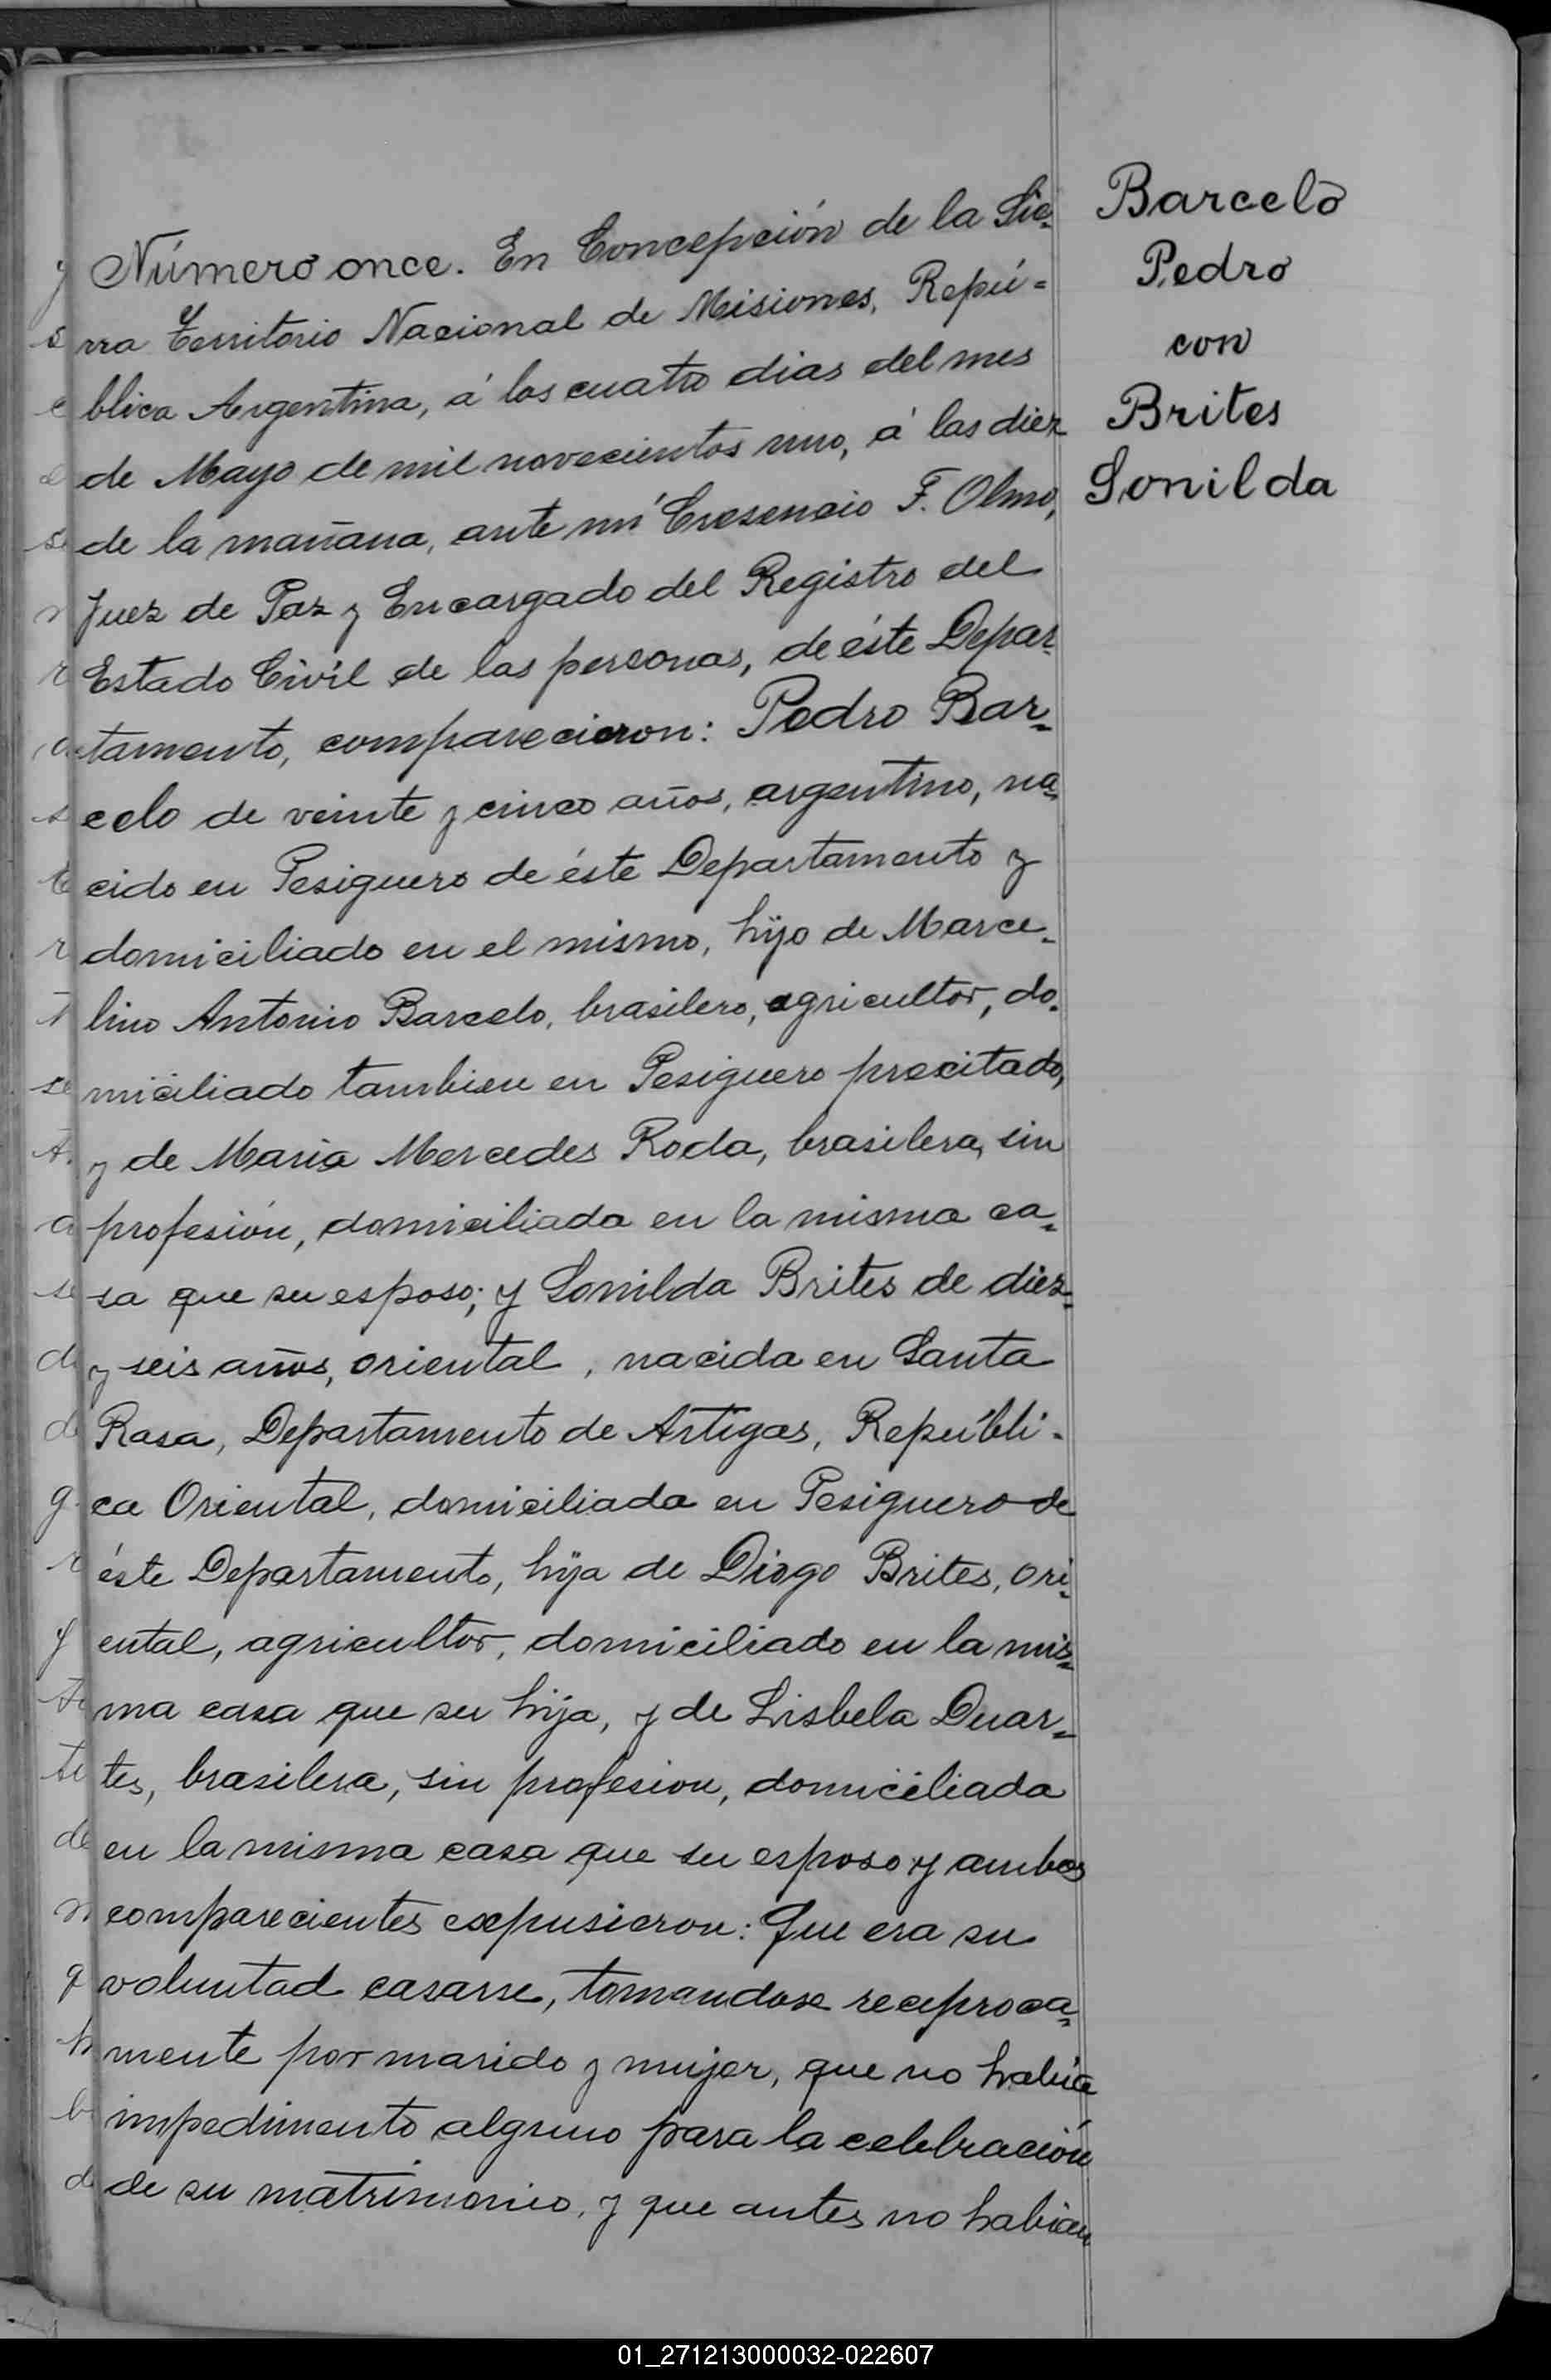 Número once. En Concepción de la Sie=
rra Territorio Nacional de Misiones, Repú=
blica Argentina, á los cuatro dias del mes
de Mayo de mil novecientos uno, á las diez
de la mañana, ante mí Cresencio F. Olmo,
Juez de Paz y Encargado del Registro del
Estado Civil de las personas, de éste Depar=
tamento, comparecieron: Pedro Bar=
celo de veinte y cinco años, argentino, na=
cido en Pesiguero de éste Departamento y
domiciliado en el mismo, hijo de Marce=
lino Antonio Barcelo, brasilero, agricultor, do=
miciliado tambien en Pesiguero precitado,
y de Maria Mercedes Roda, brasilera, sin
profesión, domiciliada en la misma ca=
sa que su esposo; y Sonilda Brites de diez
y seis años, oriental, nacida en Santa
Rasa, Departamento de Artigas, Repúbli=
ca Oriental, domiciliada en Pesiguero de
éste Departamento, hija de Diogo Brites, ori=
ental, agricultor, domiciliado en la mis=
ma casa que su hija, y de Lisbela Duar=
tes, brasilera, sin profesion, domiciliada
en la misma casa que su esposo y ambos
comparecientes expusieron: Que era su
voluntad casarse, tomandose reciproca=
mente por marido y mujer, que no había
impedimento alguno para la celebración
de su matrimonio, y que antes no habían
Barceló
Pedro
con
Brites
Sonilda
01_271213000032-022607